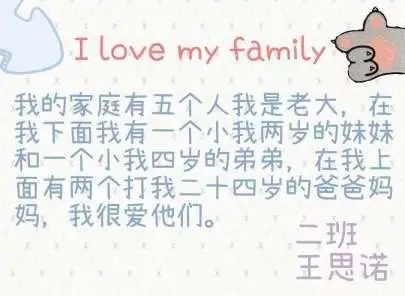 I love my family
我的家庭有五个人我是老大，在
我下面我有一个小我两岁的妹妹
和一个小我四岁的弟弟，在我上
面有两个打我二十四岁的爸爸妈
妈，我很爱他们。
二班
王思诺